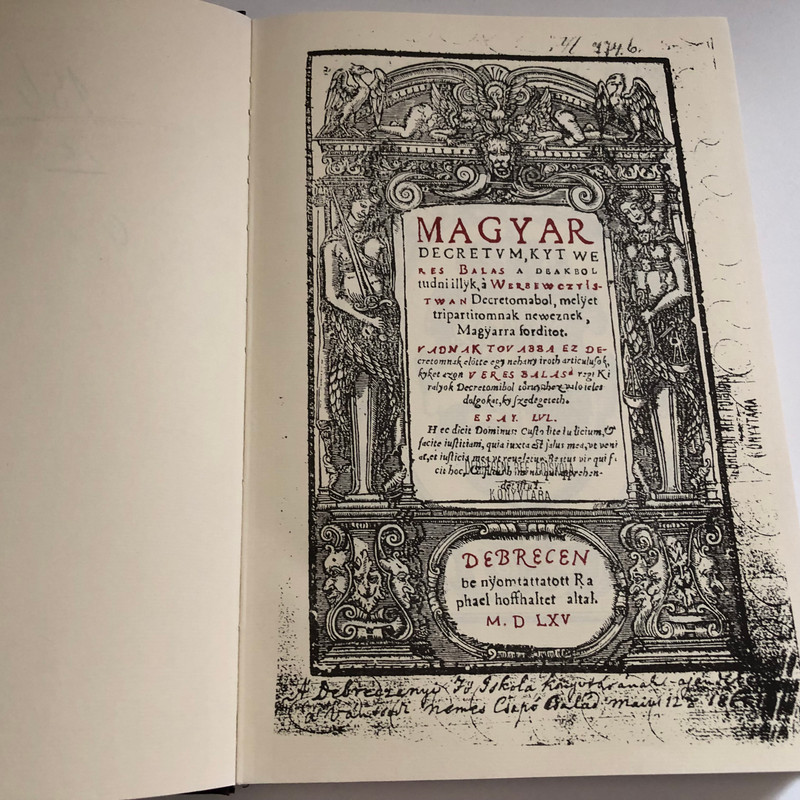 774.b.
MAGYAR
DECRETVM, KYT WE
RES BALAS A DEAKBOL
tudni illyk, à WERBEWCZY IS-
TWAN Decretomabol, melÿet
tripartitomnak neweznek,
Magÿarra forditot.
VADNAK TOVABBA EZ DE-
cretomnak elötte egy nehany iroth articulusok,
kyket azon VERES BALAS a' regi Ki
ralyok Decretomibol
dolgokat, ky szedegeteth.
ESAY. LVI.
Hec dicit Dominus: Custodite Iudicium, &
facite iustitiam, quia iuxta est salus mea, vt veni
at, et iusticia mea vt reueletur. Beatus vir qui f.
cit hoc,
DEBRECENI REF. FŐISKOLA
KÖNYVTÁRA
DEBRECEN
be nÿomtattatott Ra
phael hoffhaltet altal.
M. D LXV
DEBRECENI REF. FŐISKOLA
KÖNYVTÁRA
A Debreczenyi Fő Iskola könyvtárának
nemes Csapó Család